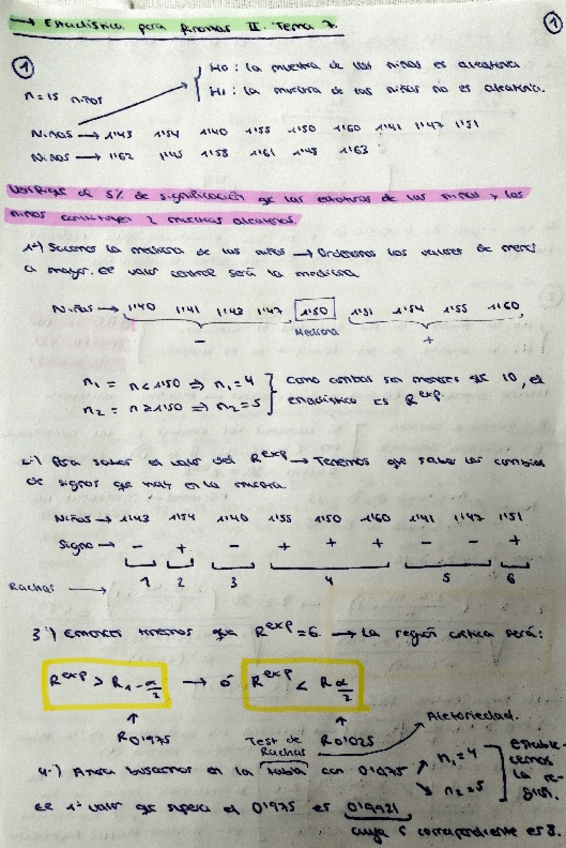 → Estadística para Finanzas II. Tema 7.
1
1
n=15 niños
H0: La muestra de las niñas es aleatoria
H1: La muestra de las niñas no es aleatoria.
Niñas → 1'43 1'54 1'40 1'55 1'50 1'60 1'41 1'47 1'51
Niños → 1'62 1'45 1'58 1'61 1'63
de 5% de significación que las estaturas de las niñas y los
niños constituyen 2 muestras aleatorias
1º) Sacamos la mediana de las niñas → Ordenamos los valores de menor
a mayor. El valor central será la mediana.
Niñas → 1'40 1'41 1'43 1'47 1'50 1'51 1'54 1'55 1'60
- Mediana +
n1 = n < 1'50 ⇒ n1 = 4
n2 = n ≥ 1'50 ⇒ n2 = 5
Como ambas son menores que 10, el
estadístico es R exp.
2º) Para saber el valor del R exp → Tenemos que saber los cambios
de signos que hay en la muestra.
Niñas → 1'43 1'54 1'40 1'55 1'50 1'60 1'41 1'47 1'51
Signo → - + - + + + - - +
Rachas → 1 2 3 4 5 6
3º) Entonces tenemos que R exp = 6. → La región crítica será:
R exp > R 1-α/2 → ó R exp < R α/2
R 0'975 Test de Rachas R 0'025 Aletoriedad.
4.-) Ahora buscamos en la tabla con 0'975 n1=4 n2=5 estable-
cemos
la re-
gión.
El 1º valor que supera el 0'975 es 0'9921
cuya c correspondiente es 8.